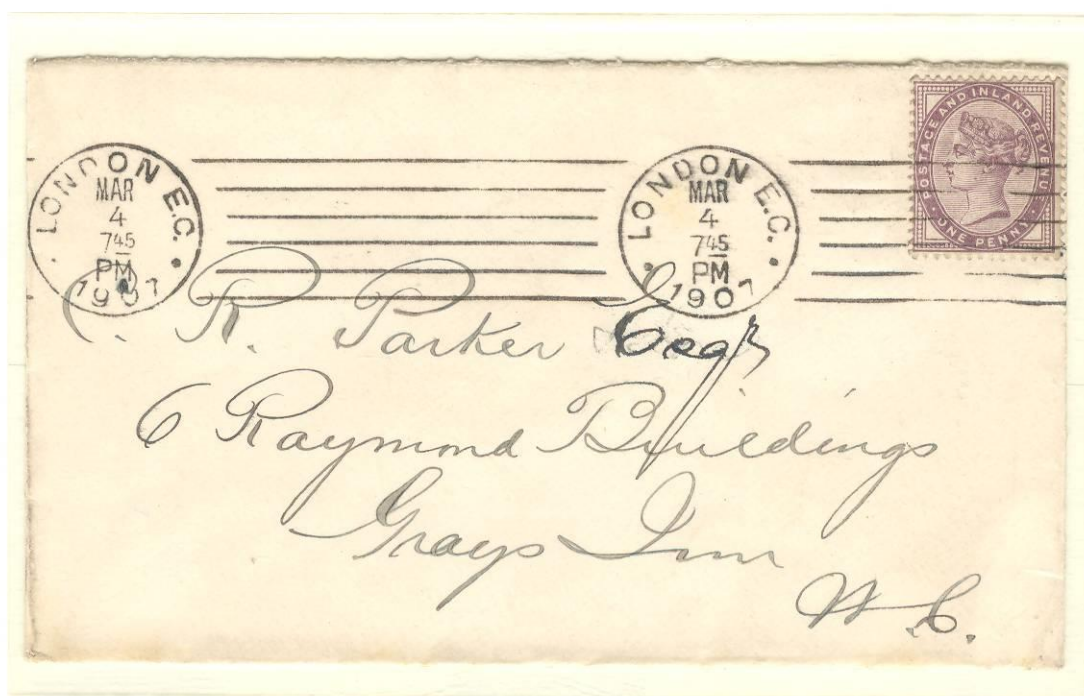 LONDON E.C.
MAR
4
7 45
PM
1907
LONDON E.C.
MAR
4
7 45
PM
1907
POSTAGE AND INLAND REVENUE
ONE PENNY
C. R. Parker Esqr
6 Raymond Buildings
Grays Inn
W.C.